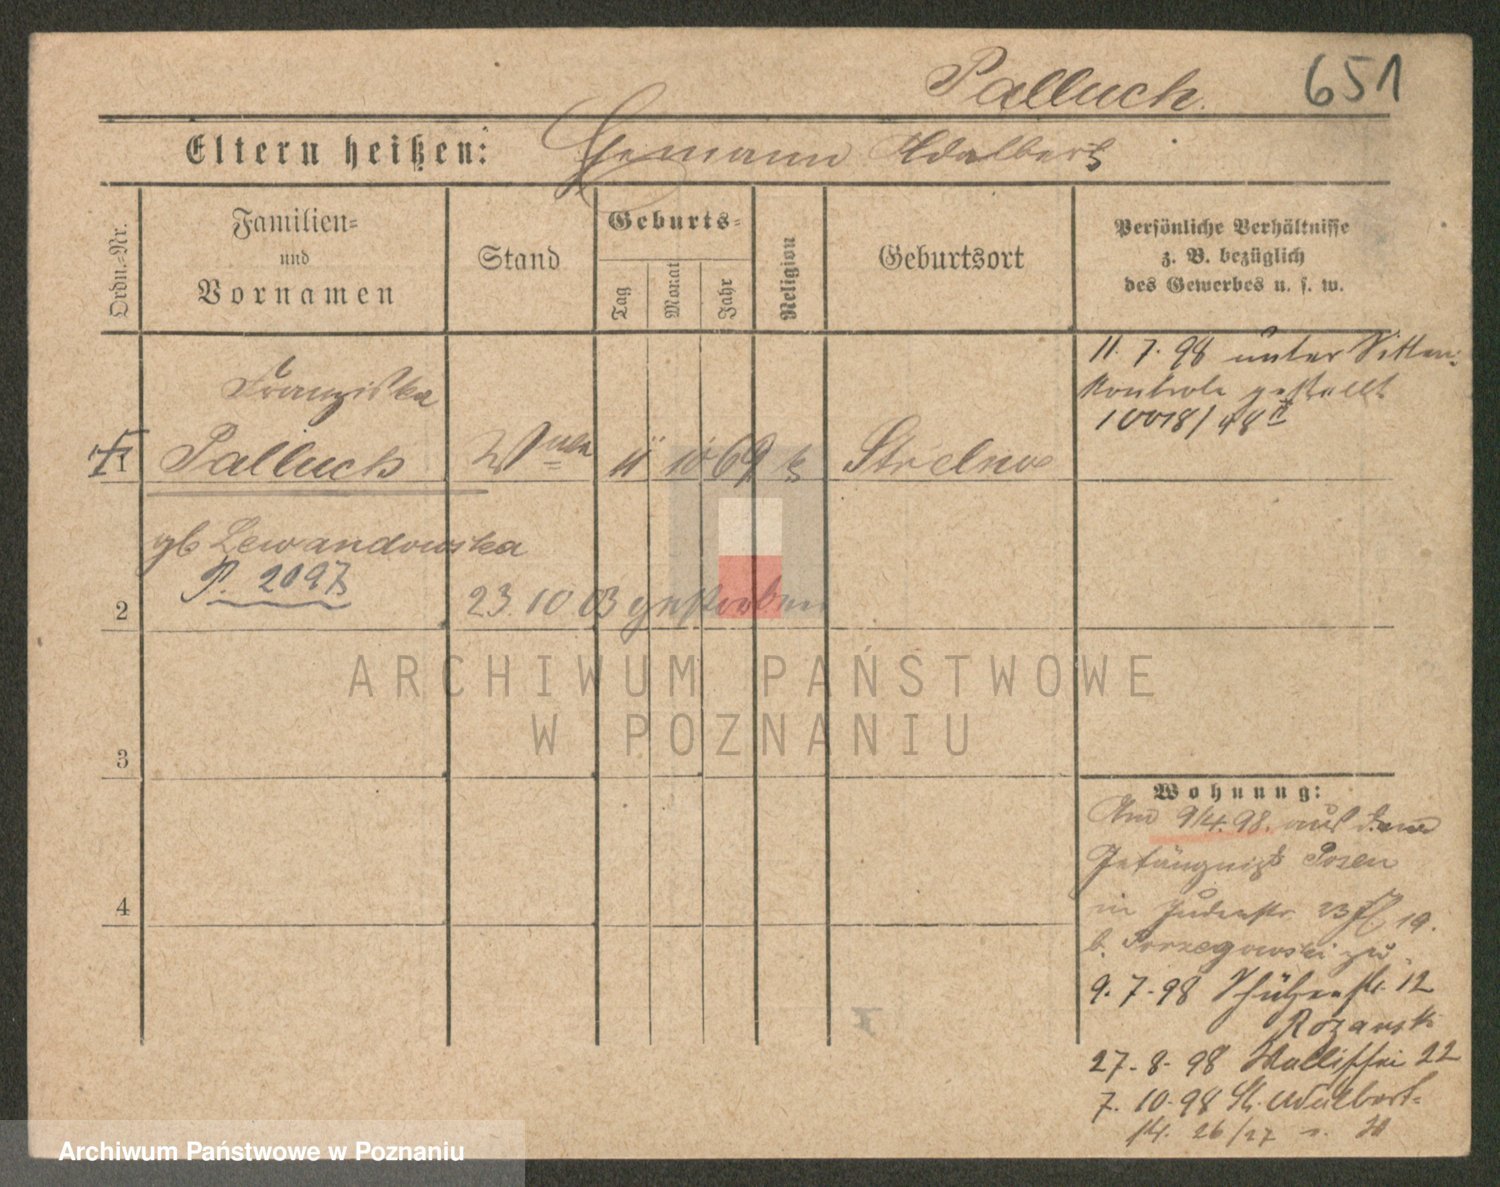 Palluch
651
Eltern heißen: Ehemann Adalbert
Ordn.-Nr.
Familien-
und
Vornamen
Stand
Geburts-
Tag
Monat
Jahr
Religion
Geburtsort
Persönliche Verhältnisse
z. B. bezüglich
des Gewerbes u. s. w.
11. 7. 98 unter Sitten-
kontrole gestellt
10018/98
Franziska
1 Palluch 11 10 69 k Strelno
gb Lewandowska
P. 2097
2 23. 10 03 gestorben
ARCHIWUM PAŃSTWOWE
W POZNANIU
3
Wohnung:
Am 9/4. 98. aus dem
Gefängniß Posen
in Judenstr. 23 19.
b. zu.
4
9. 7. 98 Schützenstr. 12
27. 8. 98 Wallischei 22
7. 10. 98 St. Adalbert-
26/27
Archiwum Państwowe w Poznaniu